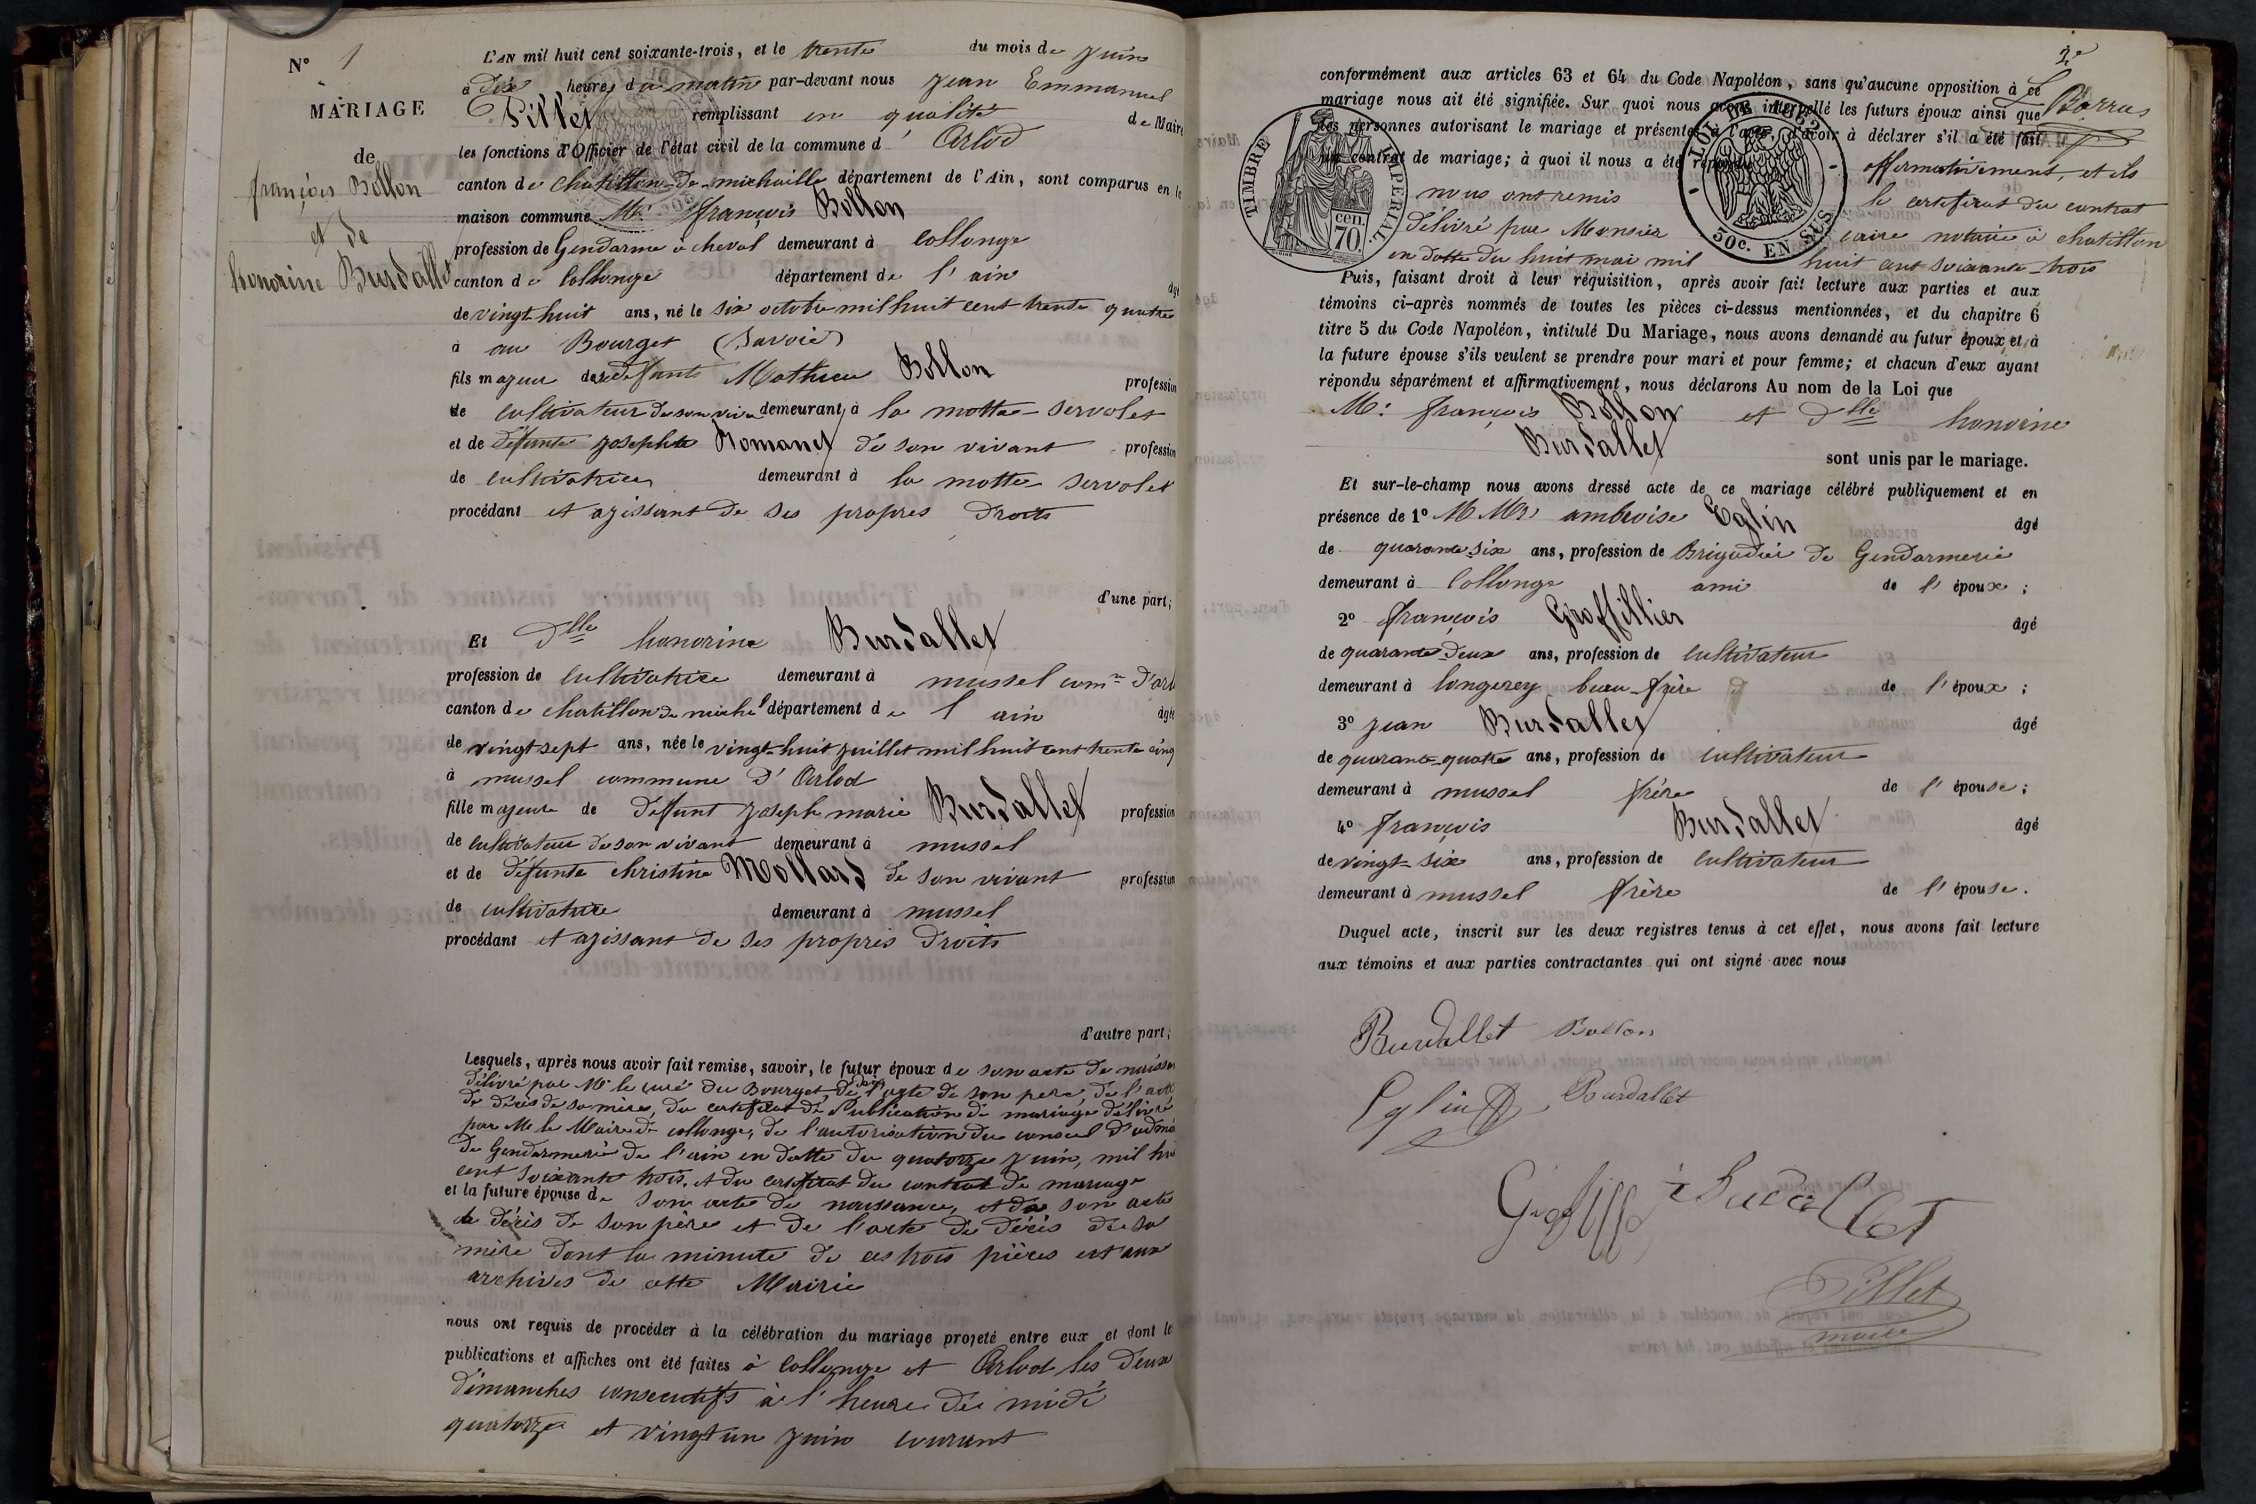 N° 1
MARIAGE
de
françois Bollon
et de
honorine Burdallet
L'AN mil huit cent soixante-trois, et le trente du mois de juin
à dix heures du matin par-devant nous Jean Emmanuel
Pillet remplissant en qualité de Maire
les fonctions d'Officier de l'état civil de la commune d' Arlod
canton de Chatillon-de-michaille département de l'Ain, sont comparus en la
maison commune Mr. françois Bollon
profession de Gendarme à cheval demeurant à Collonge
canton de Collonge département de l'ain âgé
de vingt huit ans, né le six octobre mil huit cent trente quatre
à au Bourget (Savoie)
fils majeur de défunt Mathieu Bollon profession
de cultivateur de son viva demeurant à la motte-servolet
et de défunte josephte Romanet de son vivant profession
de cultivatrice demeurant à la motte-servolet
procédant et agissant de ses propres droits
d'une part;
Et Dlle honorine Burdallet
profession de cultivatrice demeurant à mussel comne d'arl
canton de chatillon de michel département de l'ain âgée
de vingt sept ans, née le vingt-huit juillet mil huit cent trente cinq
à mussel commune d'Arlod
fille majeure de défunt joseph marie Burdallet profession
de cultivateur de son vivant demeurant à mussel
et de défunte christine Mollard de son vivant profession
de cultivatrice demeurant à mussel
procédant et agissant de ses propres droits
d'autre part;
Lesquels, après nous avoir fait remise, savoir, le futur époux de son acte de naissa
délivré par Mr le curé du Bourget, de l'acte de son père, de l'acte
de décès de sa mère, du certificat de Publication de mariage délivré
par Mr le Maire de collonge, de l'autorisation du conseil d'admi
de Gendarmerie de l'ain en datte du quatorze juin, mil hui
cent soixante trois. et du certificat du contrat de mariage
et la future épouse de son acte de naissance, et de son acte
de décès de son père et de l'acte de décès de sa
mère dont la minute de ces trois pièces est aux
archives de cette Mairie
nous ont requis de procéder à la célébration du mariage projeté entre eux et dont le
publications et affiches ont été faites à Collonge et Arlod les deux
dimanches consecutifs à l'heure de midi
quatorze et vingt un juin courant
2e
Barras
conformément aux articles 63 et 64 du Code Napoléon, sans qu'aucune opposition à ce
mariage nous ait été signifiée. Sur quoi nous avons interpellé les futurs époux ainsi que
les personnes autorisant le mariage et présentes à l'acte, d'avoir à déclarer s'il a été fait
un contrat de mariage; à quoi il nous a été répondu affirmativement, et ils
nous ont remis le certificat du contrat
délivré par Monsieur caire notaire à chatillon
en datte du huit mai mil huit cent soixante trois
TIMBRE IMPERIAL
cen. 70
LOI DE 1862
50c. EN SUS
Puis, faisant droit à leur réquisition, après avoir fait lecture aux parties et aux
témoins ci-après nommés de toutes les pièces ci-dessus mentionnées, et du chapitre 6
titre 5 du Code Napoléon, intitulé Du Mariage, nous avons demandé au futur époux et à
la future épouse s'ils veulent se prendre pour mari et pour femme; et chacun d'eux ayant
répondu séparément et affirmativement, nous déclarons Au nom de la Loi que
Mr. françois Bollon et Dlle honorine
Burdallet
sont unis par le mariage.
Et sur-le-champ nous avons dressé acte de ce mariage célébré publiquement et en
présence de 1° MMrs ambroise Eglin âgé
de quarante-six ans, profession de Brigadier de Gendarmerie
demeurant à Collonge ami de l'époux;
2° françois Groffillier âgé
de quarante-deux ans, profession de cultivateur
demeurant à longerey beau-frère de l'époux;
3° jean Burdallet âgé
de quarante-quatre ans, profession de cultivateur
demeurant à mussel frère de l'épouse;
4° françois Burdallet âgé
de vingt-six ans, profession de cultivateur
demeurant à mussel frère de l'épouse.
Duquel acte, inscrit sur les deux registres tenus à cet effet, nous avons fait lecture
aux témoins et aux parties contractantes qui ont signé avec nous
Burdallet Bollon
Eglin Burdallet
Pillet
maire